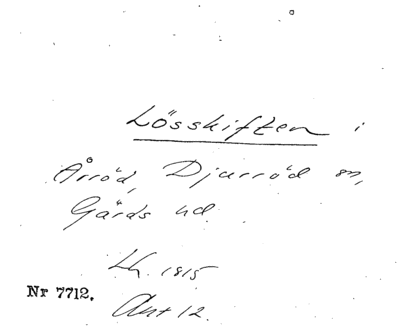 Lösskiften i
Årröd, Djurröd sn,
Gärds hd.
Lh. 1815
Nr 7712.
Ant 12.